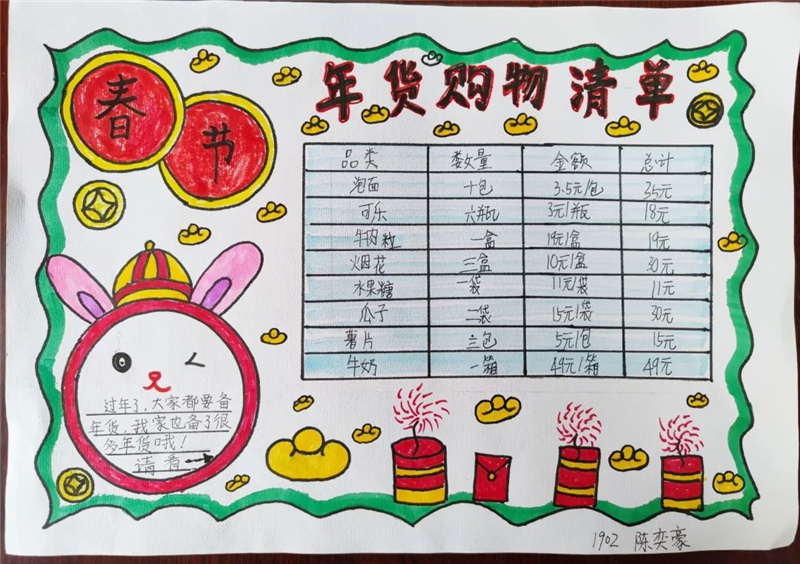 春节
年货购物清单
品类 数量 金额 总计
泡面 十包 3.5元/包 35元
可乐 六瓶 3元/瓶 18元
牛肉粒 一盒 19元/盒 19元
烟花 三盒 10元/盒 30元
水果糖 一袋 11元/袋 11元
瓜子 二袋 15元/袋 30元
薯片 三包 5元/包 15元
牛奶 一箱 49元/箱 49元
过年了,大家都要备
年货,我家也备了很
多年货哦!
请看
1902 陈奕豪